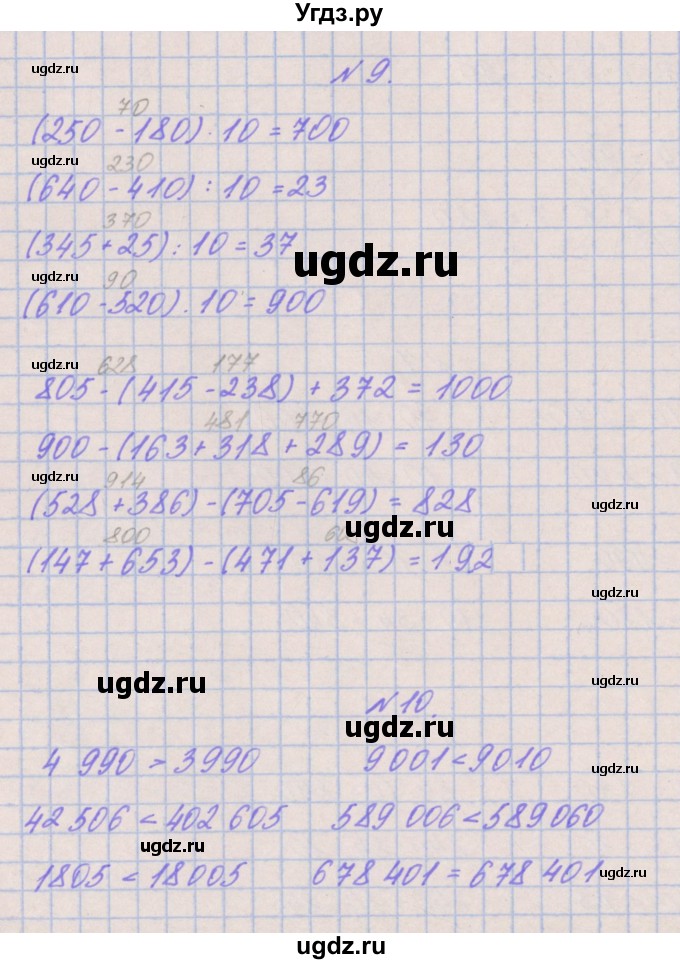 Угдз.ру
ugdz.ru
№ 9.
70
(250 - 180) · 10 = 700
ugdz.ru
230
(640 - 410) : 10 = 23
370
(345 + 25) : 10 = 37
ugdz.ru
ugdz.ru
90
(610 - 520) · 10 = 900
ugdz.ru
628 177
805 - (415 - 238) + 372 = 1000
481 770
900 - (163 + 318 + 289) = 130
ugdz.ru
914 86
(528 + 386) - (705 - 619) = 828
ugdz.ru
ugdz.ru
800
(147 + 653) - (471 + 137) = 192
ugdz.ru
ugdz.ru
ugdz.ru
№ 10.
ugdz.ru
4 990 > 3990 9001 < 9010
ugdz.ru
42 506 < 402 605 589 006 < 589 060
ugdz.ru
1805 < 18005 678 401 = 678 401
ugdz.ru
ugdz.ru